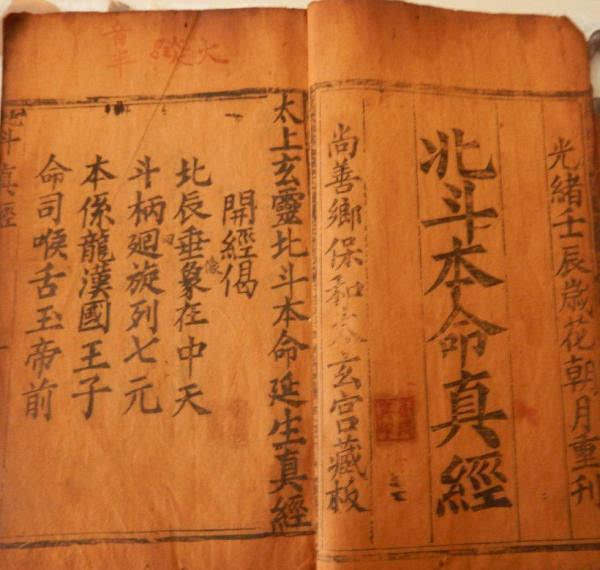 光緒壬辰歳花朝月重刊
北斗本命真經
尚善鄉保和太玄宫藏板
太上玄靈北斗本命延生真經
開經偈
北辰垂象在中天
像
斗柄廻旋列七元
回
本係龍漢國王子
命司喉舌玉帝前
北斗真經